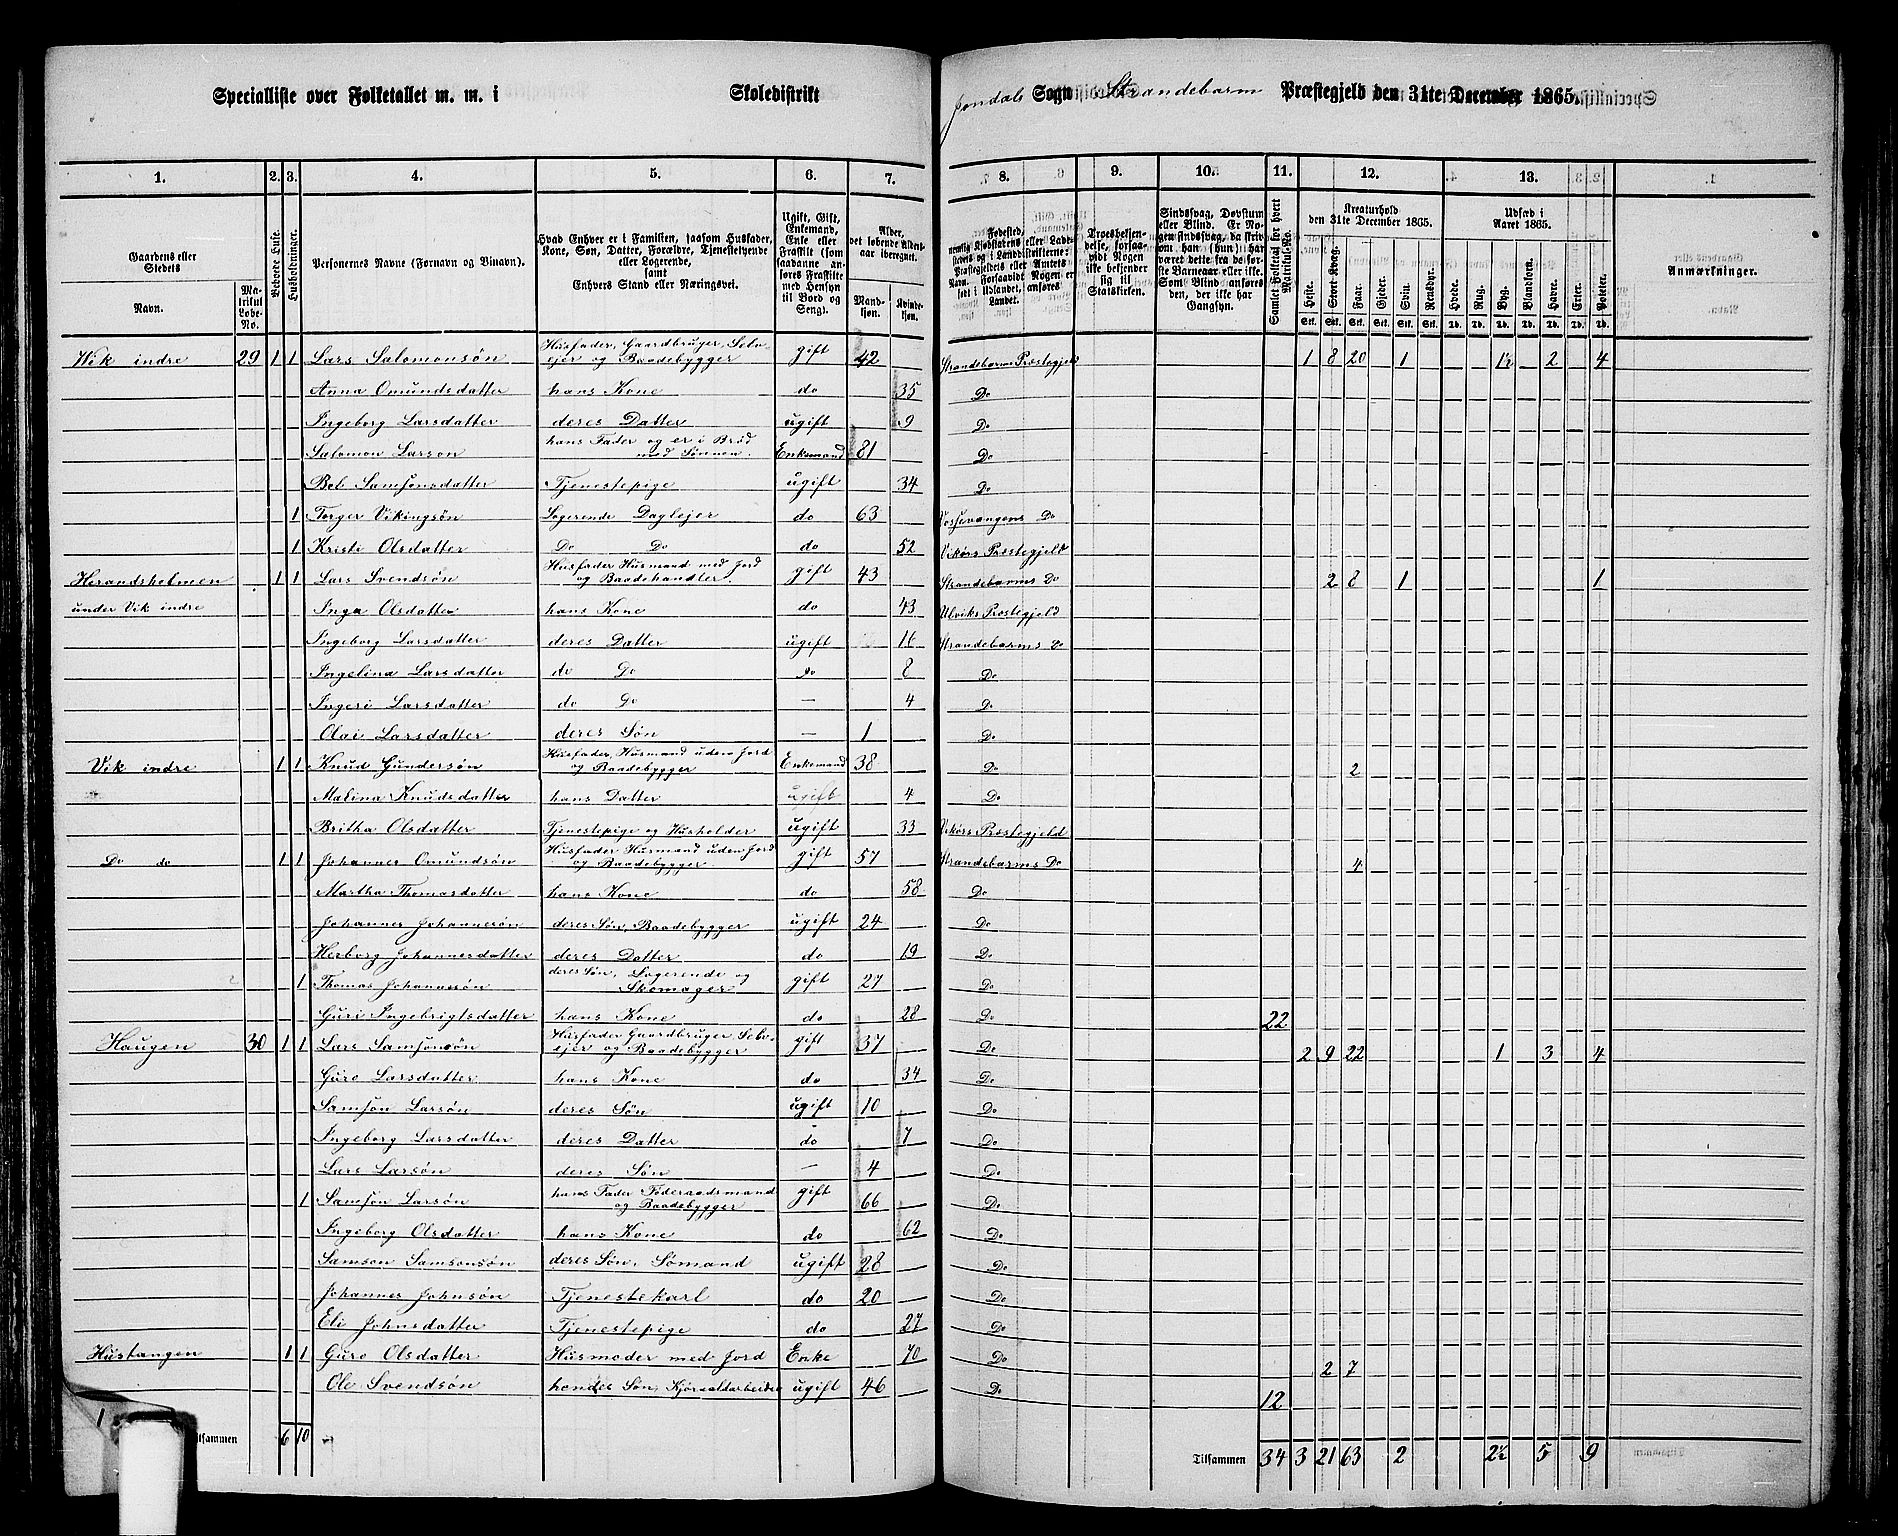 Specialliste over Folketallet m. m. i Skoledistrikt Jondals Sogn Strandebarm Præstegjeld den 31te December 1865.
1. 2. 3. 4. 5. 6. 7. 8. 9. 10. 11. 12. 13.
Gaardens eller Stedets
Navn.
Matrikul Løbe-No.
Beboede Huse.
Husholdninger.
Personernes Navne (Fornavn og Tilnavn).
Hvad Enhver er i Familien, saasom Husfader, Kone, Søn, Datter, Forældre, Tjenestetyende eller Logerende, samt Enhvers Stand eller Næringsvei.
Ugift, Gift, Enkemand, Enke eller Fraskilt (som saadanne anføres Fraskilte med Hensyn til Bord og Seng).
Alder, det løbende Aldersaar iberegnet.
Mandkjøn. Kvindekjøn.
Troesbekjendelse, forsaavidt Nogen ikke bekjender sig til Statskirken.
Sindssvag, Døvstum eller Blind. Er Nogen sindssvag, da skrives om han (hun) har været dette fra de første Barneaar eller ikke. Som Blind anføres den, der ikke har Gangsyn.
Samlet Folketal for hvert Matrikul-No.
Kreaturhold den 31te December 1865.
Heste. Stort Kvæg. Faar. Gjeder. Sviin. Rensdyr.
Udsæd i Aaret 1865.
Hvede. Rug. Byg. Blandkorn. Havre. Erter. Poteter.
Anmærkninger.
Wik indre 29 1 1 Lars Salomonsøn Husfader, Gaardbruger, Selvejer og Baadebygger gift 42 Strandebarms Præstegjeld 1 8 20 1 1½ 2 4
Anna Omundsdatter hans Kone do 35 Do
Ingeborg Larsdatter deres Datter ugift 9 Do
Salomon Larson hans Fader og er i Brød med Sønnen. Enkemand 81 Do
Bob Samsonsdatter Tjenestepige ugift 34 Do
1 Torger Vikingsøn Logerende Daglejer do 63 Vossevangens Do
1 Kristi Olsdatter Do Do do 52 Vikørs Præstegjeld
Herandsholmen 1 1 Lars Svendsøn Husfader Husmand med Jord og Baadehandler. gift 43 Strandebarms Do 2 8 1 1
under Vik indre Inga Olsdatter hans Kone do 43 Ulviks Præstegjeld
Ingeborg Larsdatter deres Datter ugift 16 Strandebarms Do
Ingelina Larsdatter do Do do 8 Do
Ingeri Larsdatter do Do — 4 Do
Olai Larsdatter deres Søn — 1 Do
Vik indre 1 1 Knud Gundersøn Husfader, Husmand uden Jord og Baadebygger Enkemand 38 Do 2
Malina Knudsdatter hans Datter ugift 4 Do
Britha Olsdatter Tjenestepige og Husholder ugift 33 Vikørs Præstegjeld
Do do 1 1 Johannes Omundsøn Husfader Husmand uden Jord og Baadebygger gift 57 Strandebarms Do 4
Martha Thomasdatter hans Kone do 58 Do
Johannes Johannesøn deres Søn, Baadebygger ugift 24 Do
Herborg Johannesdatter deres Datter do 19 Do
1 Thomas Johannesøn deres Søn, Logerende og Skomager gift 27 Do
Guri Ingebrigtsdatter hans Kone do 28 Do 22
Haugen 30 1 1 Lars Samsonsøn Husfader Gaardbruger Selvejer og Baadebygger gift 37 Do 2 9 22 1 3 4
Guro Larsdatter hans Kone do 34 Do
Samson Larsøn deres Søn ugift 10 Do
Ingeborg Larsdatter deres Datter do 7 Do
Lars Larsøn deres Søn — 4 Do
1 Samson Larsøn hans Fader Føderaadsmand og Baadebygger gift 66 Do
Ingeborg Olsdatter hans Kone do 62 Do
Samson Samsonsøn deres Søn, Sømand ugift 28 Do
Johannes Johnsøn Tjenestekarl do 20 Do
Eli Johnsdatter Tjenestepige do 27 Do
Hustangen 1 1 Guro Olsdatter Husmoder med Jord Enke 70 Do 2 7
Ole Svendsøn hendes Søn, ugift 46 Do 12
Tilsammen 6 10 Tilsammen 34 3 21 63 2 2½ 5 9